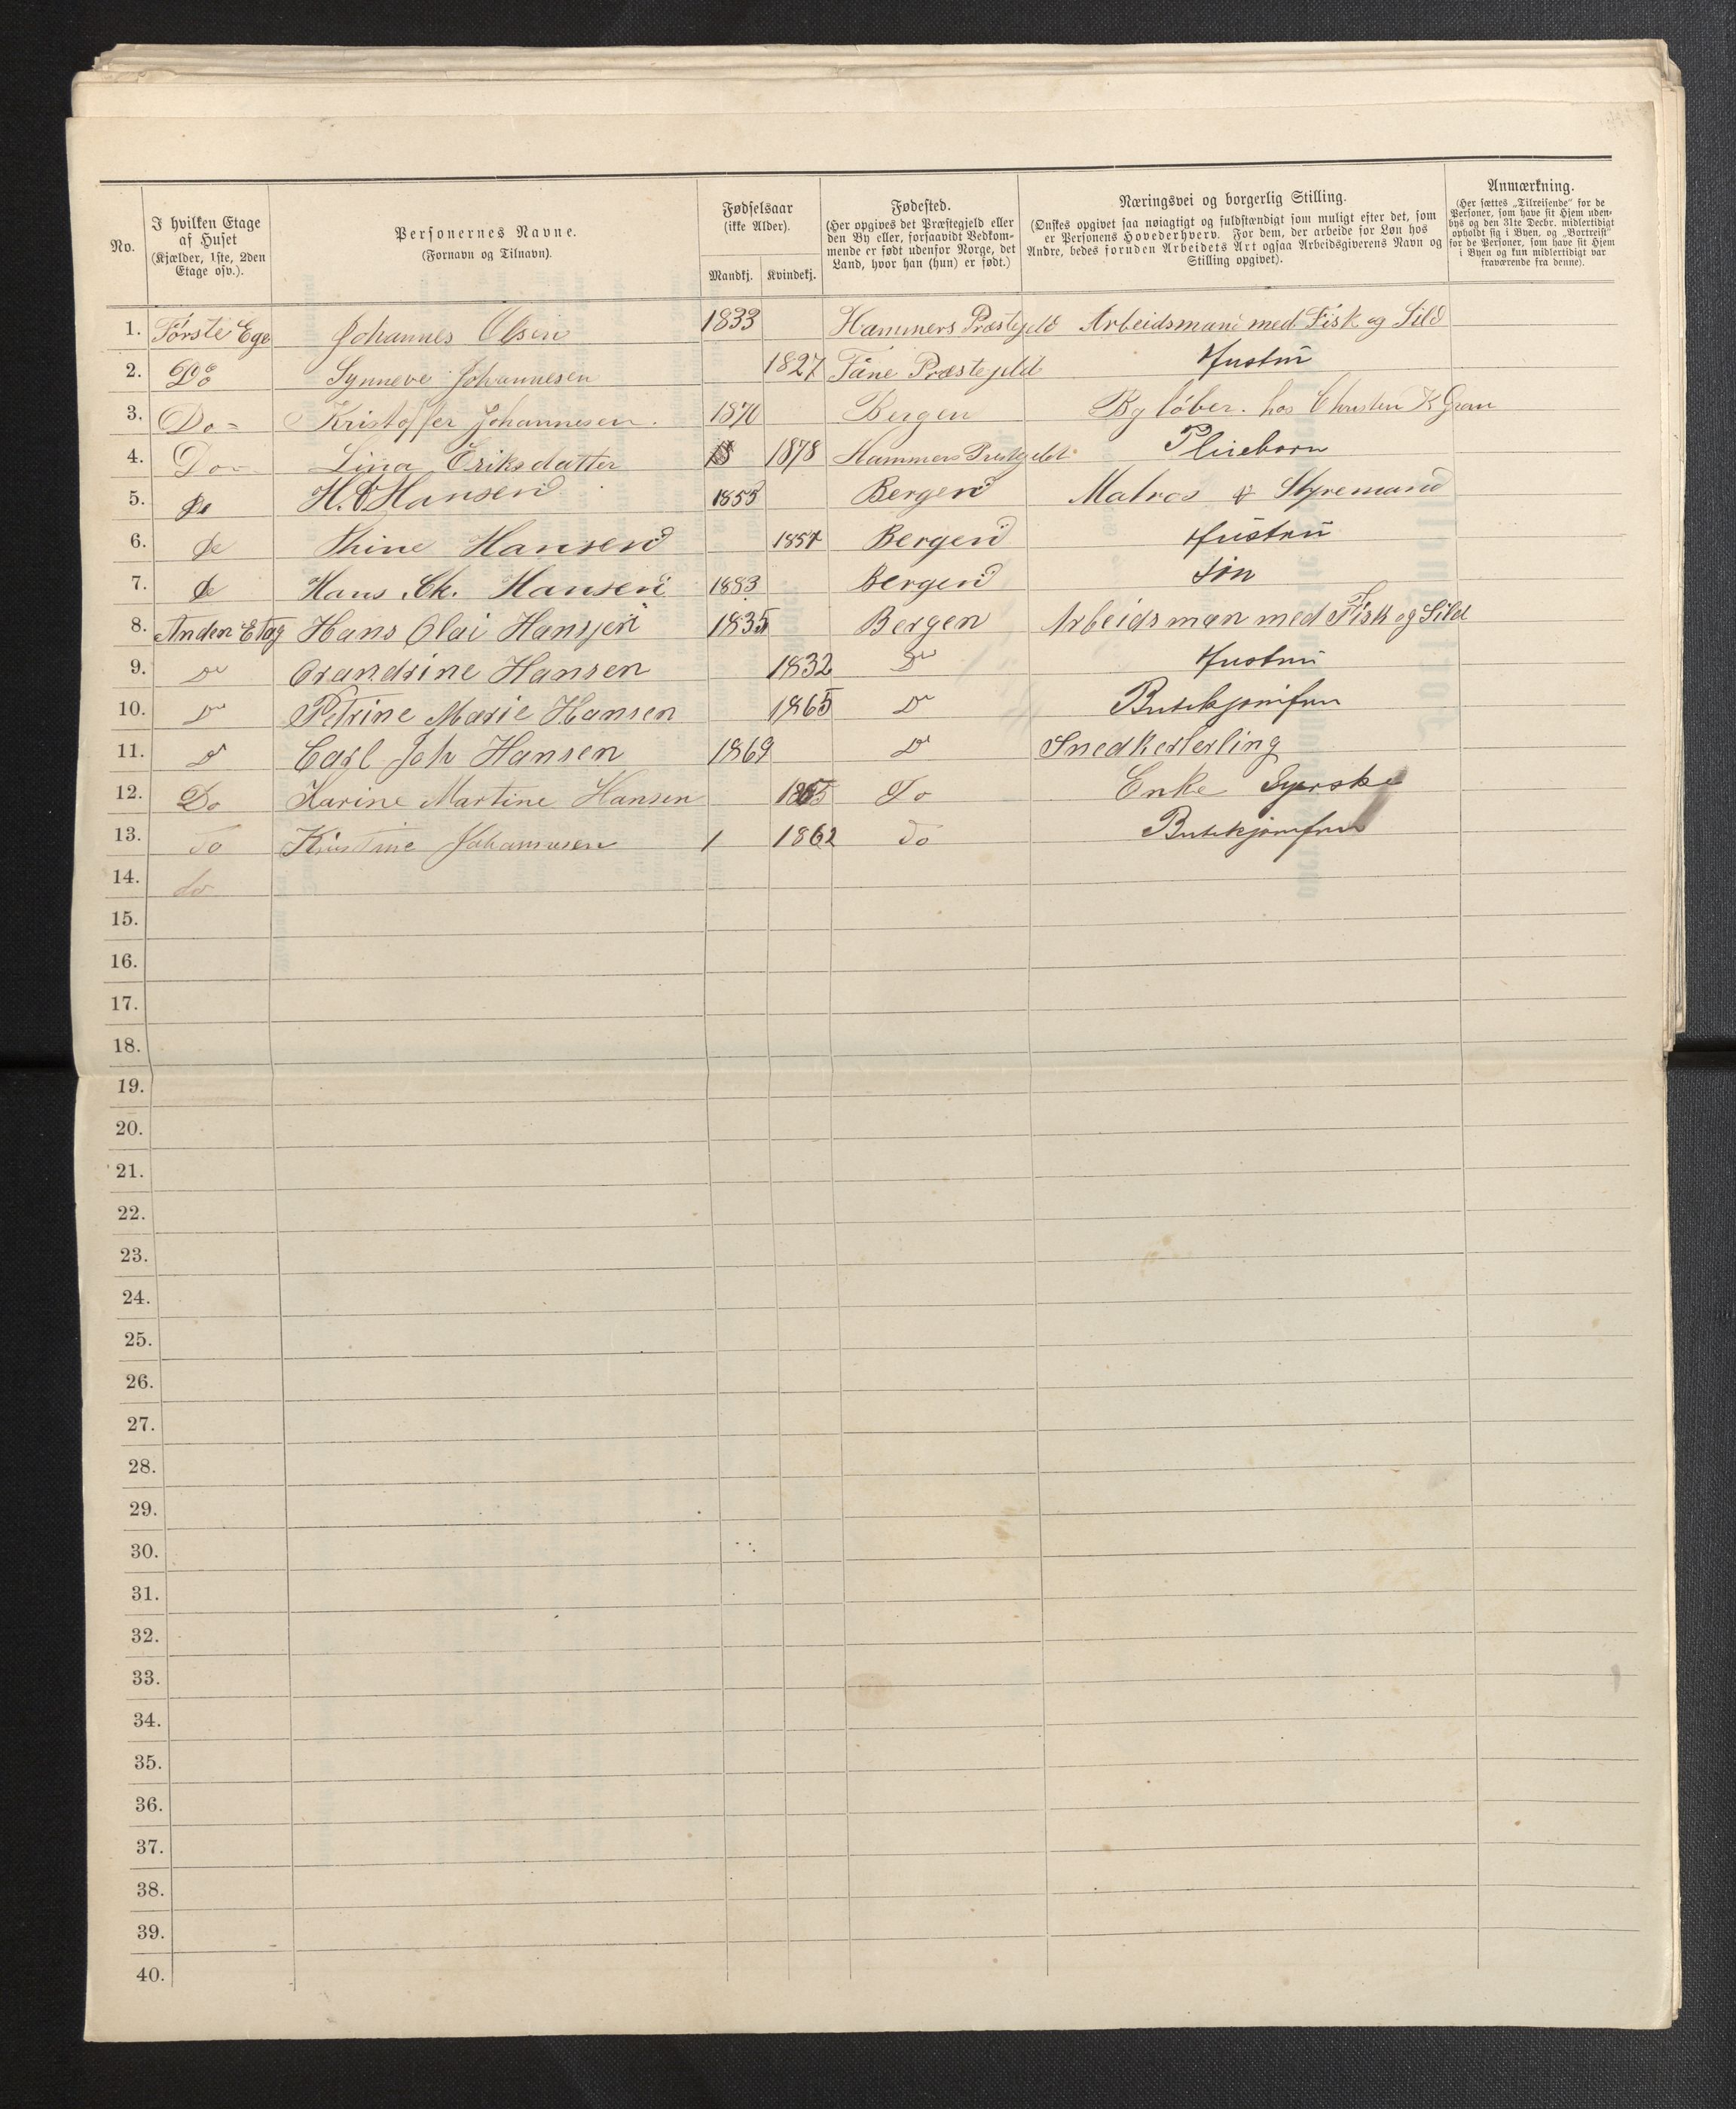 No.
I hvilken Etage
af Huset
(Kjælder, 1ste, 2den
Etage osv.).
Personernes Navne.
(Fornavn og Tilnavn).
Fødselsaar
(ikke Alder).
Mandkj. Kvindekj.
Fødested.
(Her opgives det Præstegjeld eller
den By eller, forsaavidt Vedkom-
mende er født udenfor Norge, det
Land, hvor han (hun) er født.)
Næringsvei og borgerlig Stilling.
(Ønskes opgivet saa nøiagtigt og fuldstændigt som muligt efter det, som
er Personens Hovederhverv. For dem, der arbeide for Løn hos
Andre, bedes foruden Arbeidets Art ogsaa Arbeidsgiverens Navn og
Stilling opgivet).
Anmærkning.
(Her sættes „Tilreisende“ for de
Personer, som have sit Hjem uden-
bys og den 31te Decbr. midlertidigt
opholdt sig i Byen, og „Bortreist“
for de Personer, som have sit Hjem
i Byen og kun midlertidigt var
fraværende fra denne).
1. Første Ege Johannes Olsen 1833 Hammers Præstegjeld Arbeidsmand med Fisk og Sild
2. Do Synneve Johannesen 1827 Fane Præstegjeld Hustru
3. Do Kristoffer Johannesen. 1870 Bergen By løber. hos Christen K Gran
4. Do Lina Eriksdatter 1878 Hammers Prestegjeldt Pleiebarn
5. Do H. Hansen 1855 Bergen Matros & Styremand
6. Do Thine Hansen 1857 Bergen Hustru
7. Do Hans Ch. Hansen 1883 Bergen Søn
8. Anden Etag Hans Olai Hansen 1835 Bergen Arbeidsman med Fisk og Sild
9. Do Orandrine Hansen 1832 Do Hustru
10. Do Petrine Marie Hansen 1865 Do Butikjomfru
11. Do Carl Joh Hansen 1869 Do Snedkerlerling
12. Do Karine Martine Hansen 1855 Do Enke Syerske
13. Do Kristine Johannesen 1 1862 do Butikjomfru
14. do
15.
16.
17.
18.
19.
20.
21.
22.
23.
24.
25.
26.
27.
28.
29.
30.
31.
32.
33.
34.
35.
36.
37.
38.
39.
40.